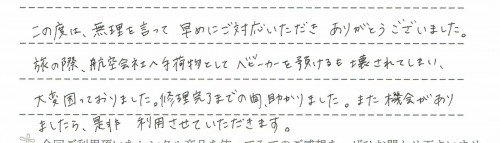 この度は、無理を言って 早めにご対応いただき ありがとうございました。
旅の際、航空会社へ手荷物として ベビーカーを預けるも壊されてしまい、
大変困っておりました。修理完了までの間、助かりました。また機会があり
ましたら、是非 利用させていただきます。